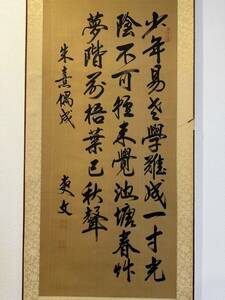 少年易老學難成一寸光
陰不可輕未覺池塘春艸
夢階前梧葉已秋聲
朱熹偶成
爽文